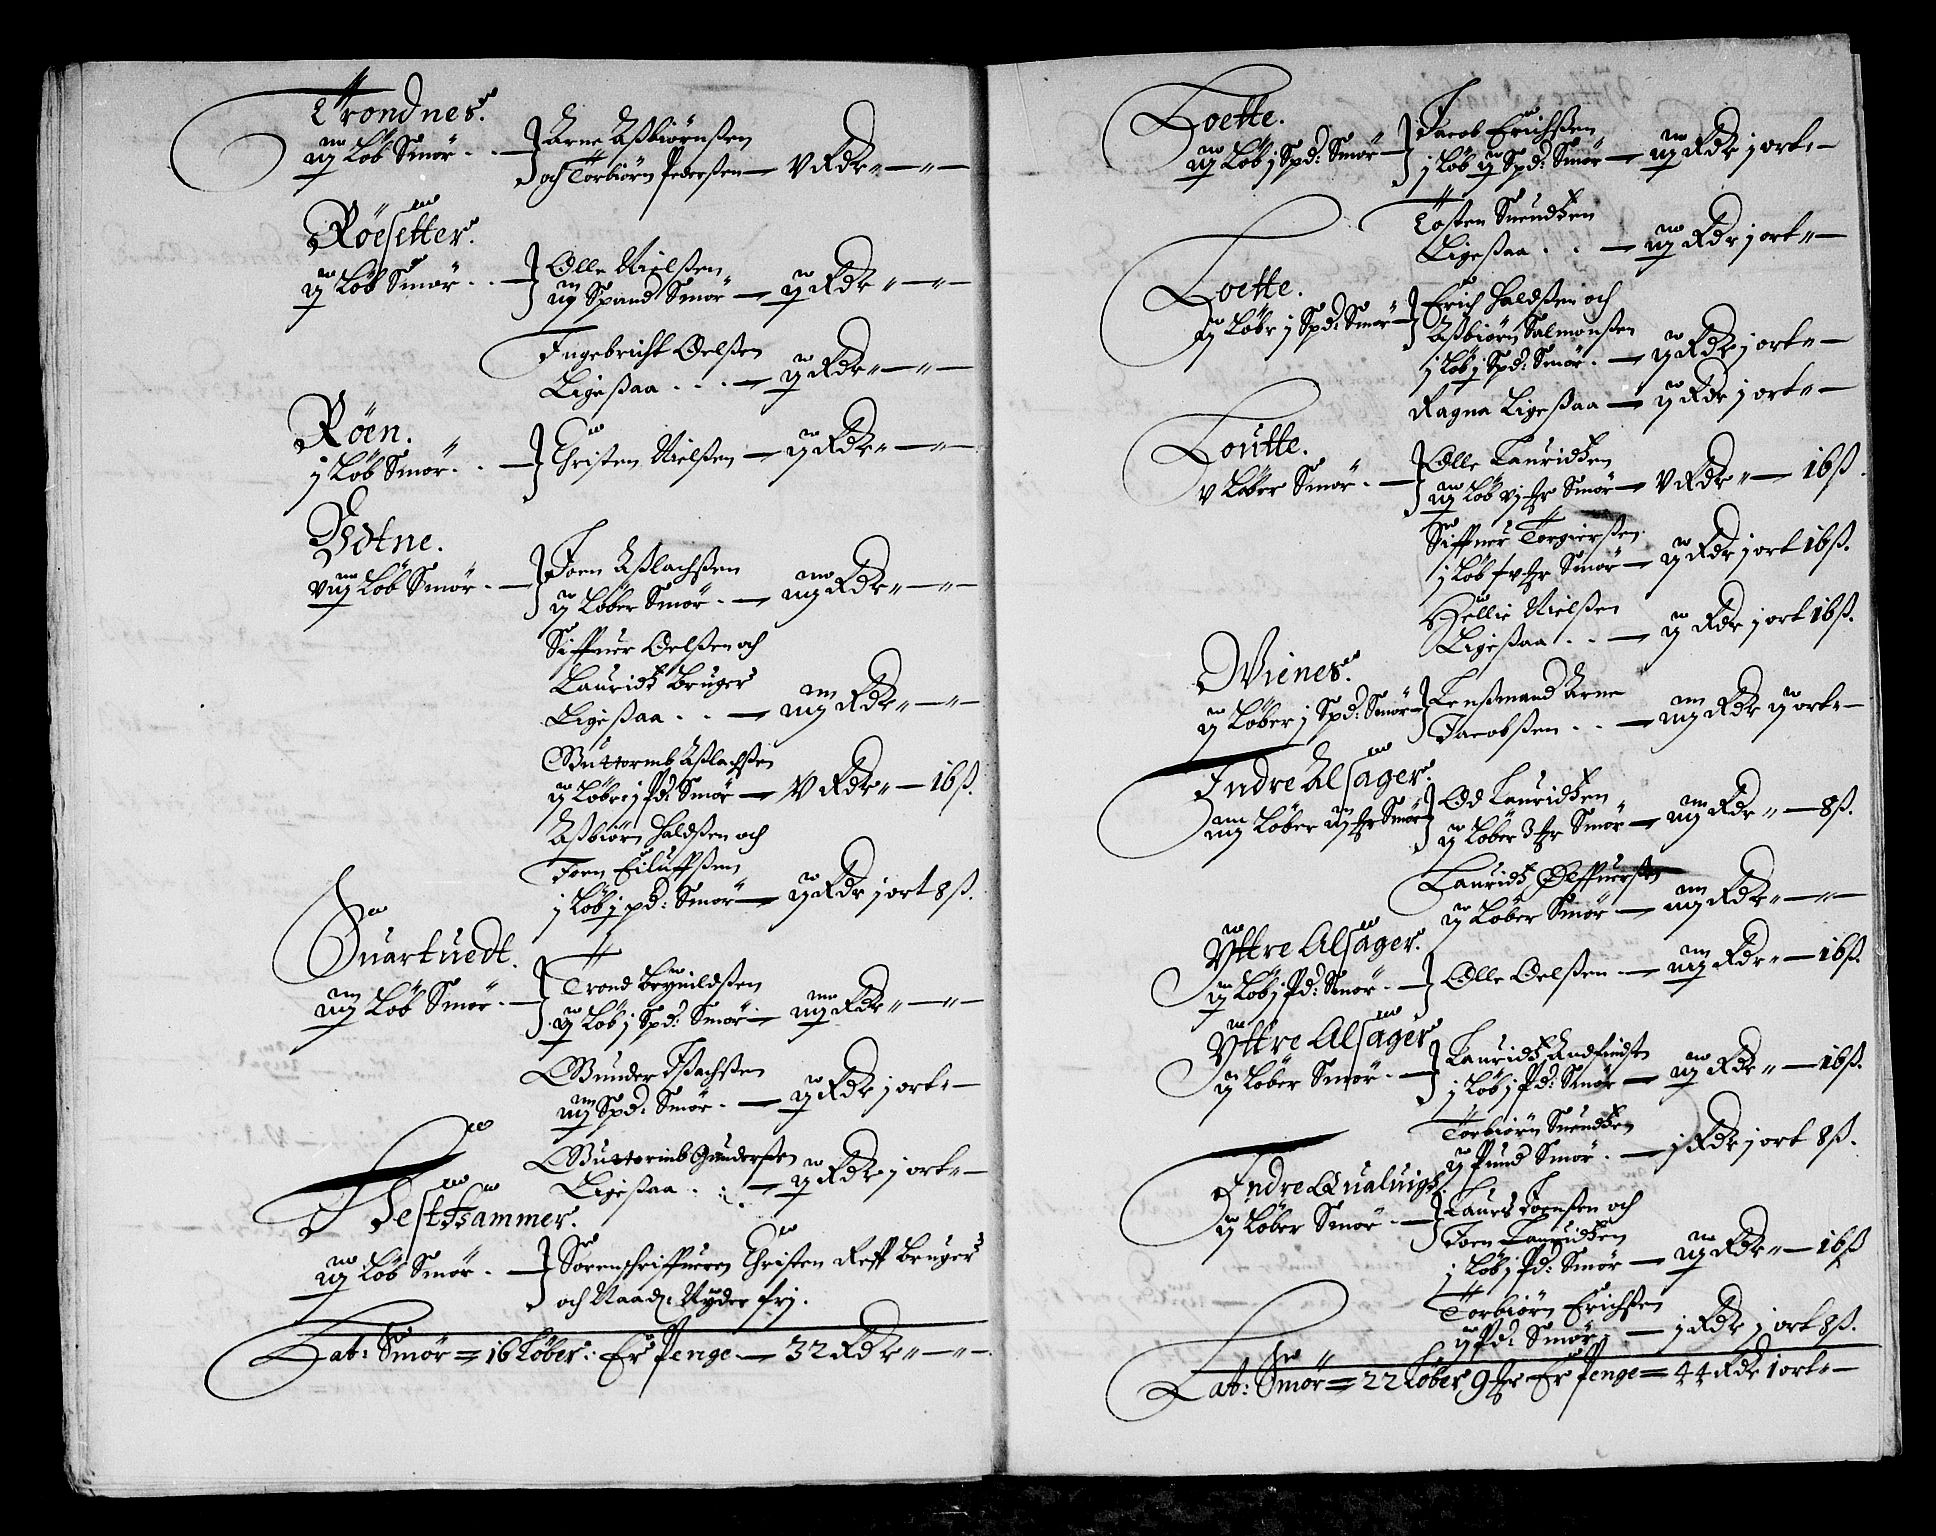 Trondnes.
iij Løb Smør - Arne Aßbiørnßen
och Torbiørn Pederßen — v Rdr
Röesetter.
ij Løb Smør - Olle Nielßen
iij Spand Smør — ij Rdr
Ingebricht Oelßen
Ligeßaa — ij Rdr
Röen.
j Løb Smør - Christen Nielßen — ij Rdr
Jdtne.
viij Løb Smør - Joen Aßlachßen
ij Løber Smør — iiij Rdr
Siffuer Oelßen och
Lauridtz Bruger
Ligeßaa — iiij Rdr
Guttormb Aßlachßen
ij Løbr j Pd: Smør — v Rdr — 16 ß.
Aßbiørn Haldßen och
Joen Eiluffßen
j Løb j pd: Smør — ij Rdr j ort 8 ß.
Suartuedt.
iiij Løb Smør - Trond Brynildßen
ij Løb j Spd: Smør — iiij Rdr
Gunder Ißachßen
iiij Spd: Smør — ij Rdr j ort
Guttormb Gunderßen
Ligeßaa — ij Rdr j ort
Westhammer.
iij Løb Smør - Sorenschriffueren Christen Reff Bruger
och Naad: Nyder frj.
Lat: Smør = 16 Løber: Er Penge — 32 Rdr
Loette.
iij Løb j Spd: Smør - Jacob Erichßen
j Løb ij Spd: Smør — iij Rdr j ort
Tosten Suendtzen
Ligeßaa — iij Rdr j ort
Loette.
ij Løbr j Spd: Smør - Erich Haldßen och
Aßbiørn Salmonßen
j Løb j Spd: Smør — ij Rdr j ort
Ragna Ligeßaa — ij Rdr j ort
Loutte.
v Løber Smør - Olle Lauridtzen
ij Løb vj mkr Smør — v Rdr — 16 ß.
Siffuer Torgierßen
j Løb + v mkr Smør — ij Rdr j ort 16 ß.
Hellie Nielßen
Ligeßaa — ij Rdr j ort 16 ß.
Wienes.
ij Løber j Spd: Smør - Lenßmand Arne
Jacobßen — iiij Rdr ij ort
Indre Alsager.
iiij Løber iij mkr Smør - Od Lauridtzen
ij Løber 3 mkr Smør — iiij Rdr — 8 ß.
Lauridtz Olffuerßen
ij Løber Smør — iiij Rdr
Yttre Alsager.
ij Løb j Pd: Smør - Olle Oelßen — iiij Rdr — 16 ß.
Yttre Alsager
ij Løber Smør - Lauridtz Andfindßen
j Løb j Pd: Smør — iij Rdr — 16 ß.
Torbiørn Suendtzen
ij Pund Smør — j Rdr j ort 8 ß.
Indre Qualuigh
ij Løber Smør - Laurs Joenßen och
Joen Lauridtzen
j Løb j Pd: Smør — iij Rdr — 16 ß
Torbiørn Erichßen
ij Pd: Smør — j Rdr j ort 8 ß.
Lat: Smør = 22 Løber 9 mkr Er Penge = 44 Rdr 1 ort